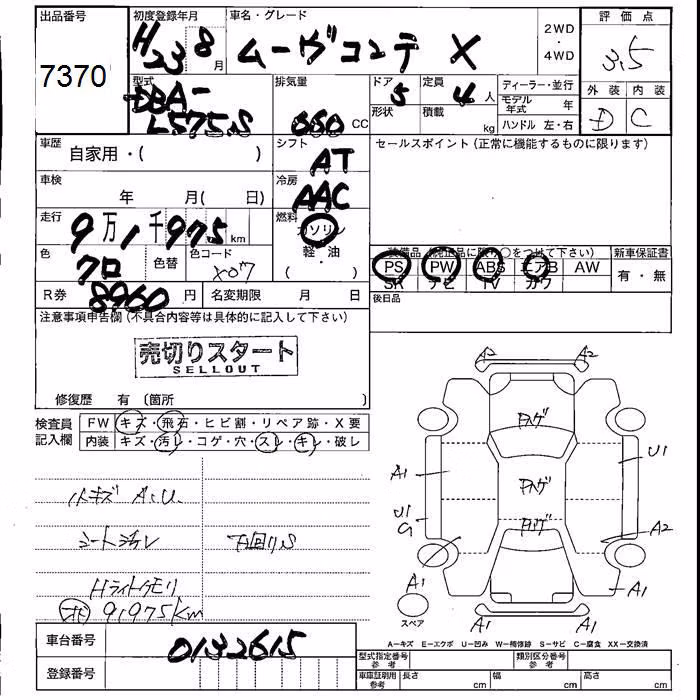 出品番号 初度登録年月 車名・グレード 2WD・4WD 評価点
7370 H23 8月 ムーヴコンテ X 3.5
型式 排気量 ドア 定員 ディーラー・並行 外装 内装
DBA-L575S 660 CC 5 4人 モデル年式 年 D C
形状 積載 kg ハンドル 左・右
車歴 シフト セールスポイント(正常に機能するものに限ります)
自家用・( ) AT
車検 冷房
年 月( 日) AAC
走行 燃料
9万1千975km ガソリン
軽・油
( ・ )
色 色替 色コード
クロ X07
装備品(純正品に限り○をつけて下さい) 新車保証書
PS PW ABS エアB AW 有・無
SR ナビ TV カワ
R券 8960円 名変期限 月 日 後日品
注意事項申告欄(不具合内容等は具体的に記入して下さい)
売切りスタート
SELLOUT
修復歴 有 〔箇所 〕
検査員記入欄 FW キズ・飛石・ヒビ割・リペア跡・X要
内装 キズ・汚レ・コゲ・穴・スレ・キレ・破レ
小キズ A.U.
シートヨゴレ 下回りS
Hライトクモリ
91975km
A2 A2
ハゲ
A1 U1
ハゲ
U1
G
ハゲ A2
A1 A1
スペア A1 A1
A−キズ E−エクボ U−凹み W−補修跡 S−サビ C−腐食 XX−交換済
車台番号 0132615
型式指定番号 参考 類別区分番号 参考
登録番号
車庫証明用 参考 長さ cm 幅 cm 高さ cm